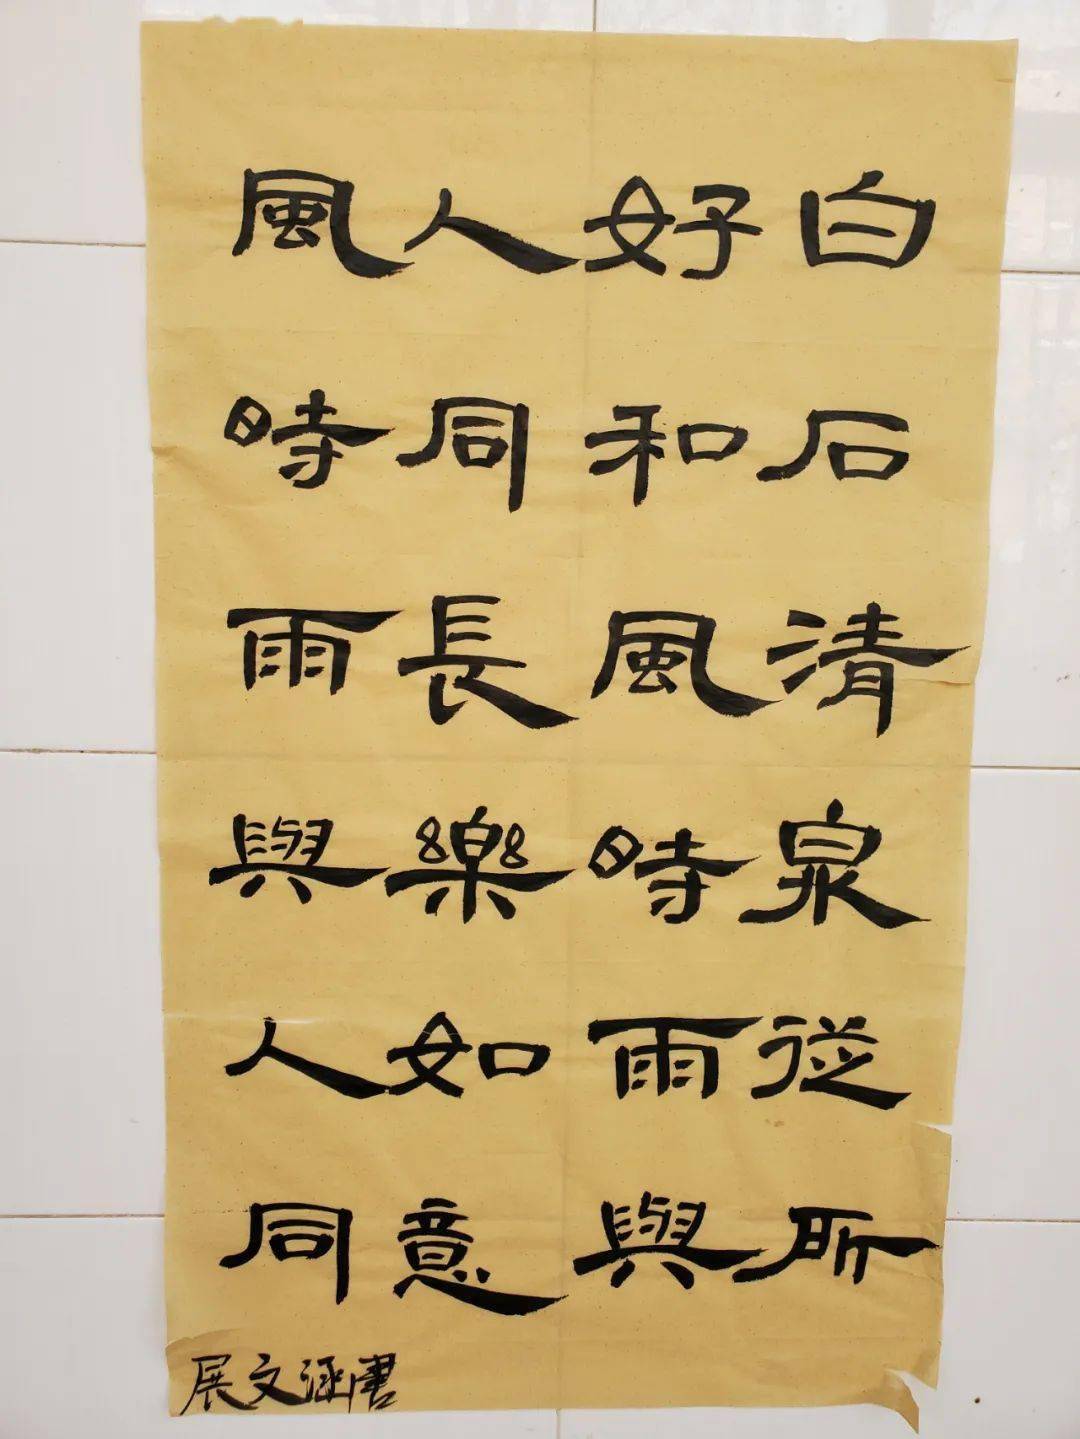 白石清泉從所
好和風時雨與
人同長樂如意
風時雨與人同
展文涵書